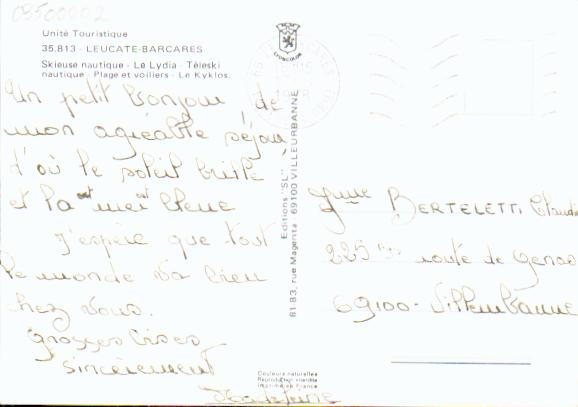 03500002
Unité Touristique
35.813 - LEUCATE-BARCARES
Skieuse nautique - Le Lydia - Téleski
nautique - Plage et voiliers - Le Kyklos.
LYONCOLOR
Un petit bonjour de
mon agréable séjour
d'où le soleil brille
et la mer est bleue
J'espère que tout
le monde va bien
chez vous.
Grosses bises
sincèrement
Editions "SL"
81.83, rue Magenta 69100 VILLEURBANNE
Couleurs naturelles
Reproduction interdite
Imprimé en France
Mme BERTELETTI Claudia
225 route de Genas
69100 - Villeurbanne